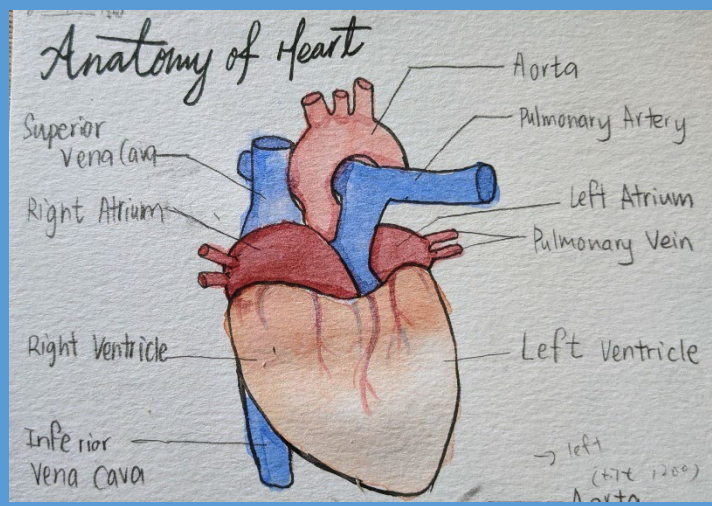 Anatomy of Heart
Superior
Vena Cava
Right Atrium
Right Ventricle
Inferior
Vena Cava
Aorta
Pulmonary Artery
Left Atrium
Pulmonary Vein
Left Ventricle
→ left
Aorta